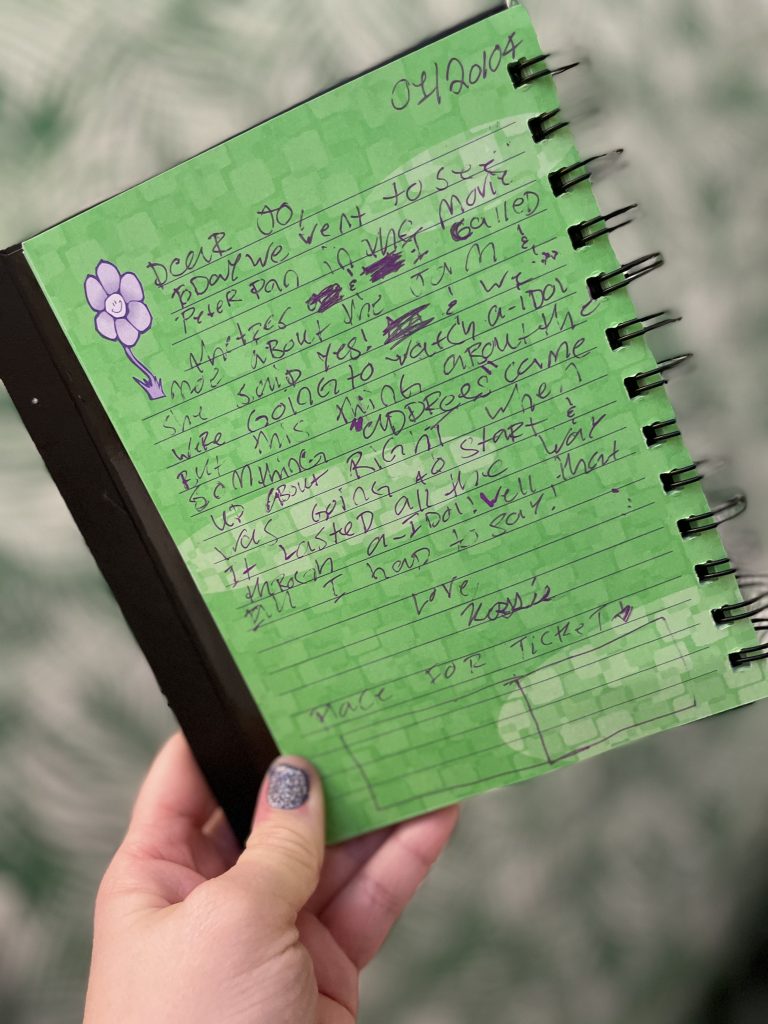 01/20/04
Dear Jo,
today we went to see
Peter Pan in the movie
& I called
moe about the Jam &
she said yes! & we
were going to watch a-idol
But this thing about the
something "address" came
up about Right when
was going to start &
It lasted all the way
through a-idol! well that
all I had to say!
Love,
Place FOR TICKET